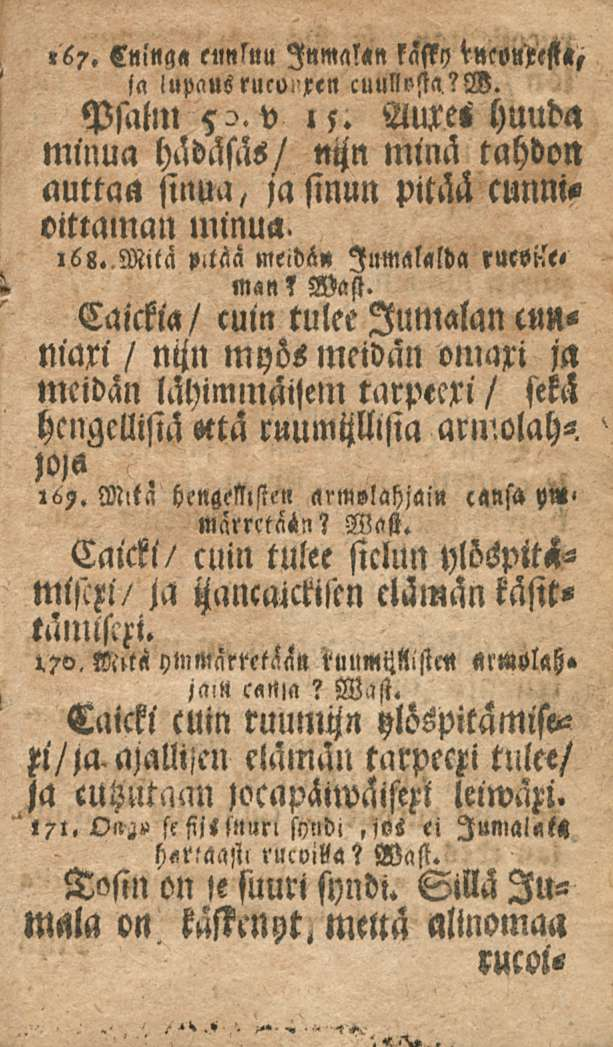 167. Cuinga cuuluu Jumalan käsky rucouxesta,
ja lupaus rucouxen cuullosta? W.
Psalm 50. v 15. Auxes huuda
minua hädäsäs/ nijn minä tahdon
auttaa sinua, ja sinun pitää cunni-
oittaman minua.
168. Mitä pitää meidän Jumalalda rucoile-
man? Wast.
Caickia/ cuin tulee Jumalan cun-
niaxi / nijn myös meidän omaxi ja
meidän lähimmäisem tarpeexi / sekä
hengellisiä että ruumijllisia armolah-
joja
169. Mitä hengellisten armolahjain cansa ym-
märretään? Wast.
Caicki/ cuin tulee sielun ylöspitä-
misexi/ ja ijancaickisen elämän käsit-
tämisexi.
170. Mitä ymmärretään ruumijllisten armolah-
jain cansa ? Wast.
Caicki cuin ruumijn ylöspitämise-
xi/ja ajallisen elämän tarpeexi tulee/
ja cutzutaan jocapäiwäisexi leiwäxi.
171. Ongo se sijs suuri syndi , jos ei Jumalata
hartaasti rucoilla? Wast.
Tosin on se suuri syndi. Sillä Ju-
mala on käskenyt, meitä alinomaa
rucoi-